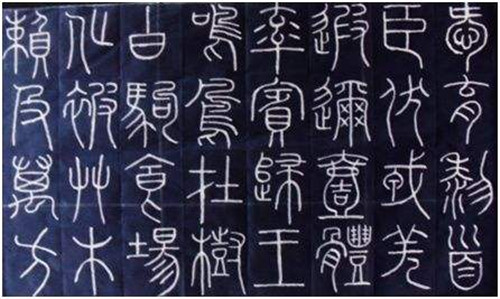 愛育黎首
臣伏戎羌
遐邇壹體
率賓歸王
鳴鳳在樹
白駒食場
化被草木
賴及萬方